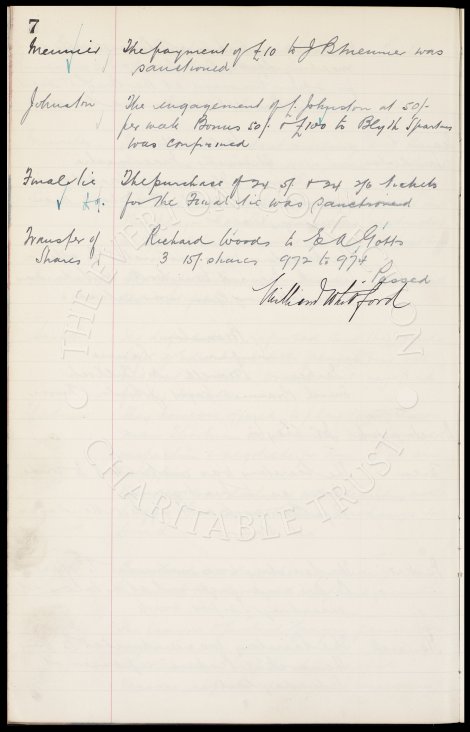 7
Meunier, The payment of £10 to J B Meunier was
sanctioned
Johnston The engagement of J. Johnston at 50/-
per week Bonus 50/- & £100 to Blyth Spartans
was confirmed
Final tie The purchase of 24 5/- & 24 2/6 tickets
for the Final tie was sanctioned
Transfer of Richard Woods to E A Gotts
Shares 3 15/- shares 972 to 974
Passed
THE EVERTON COLLECTION
CHARITABLE TRUST